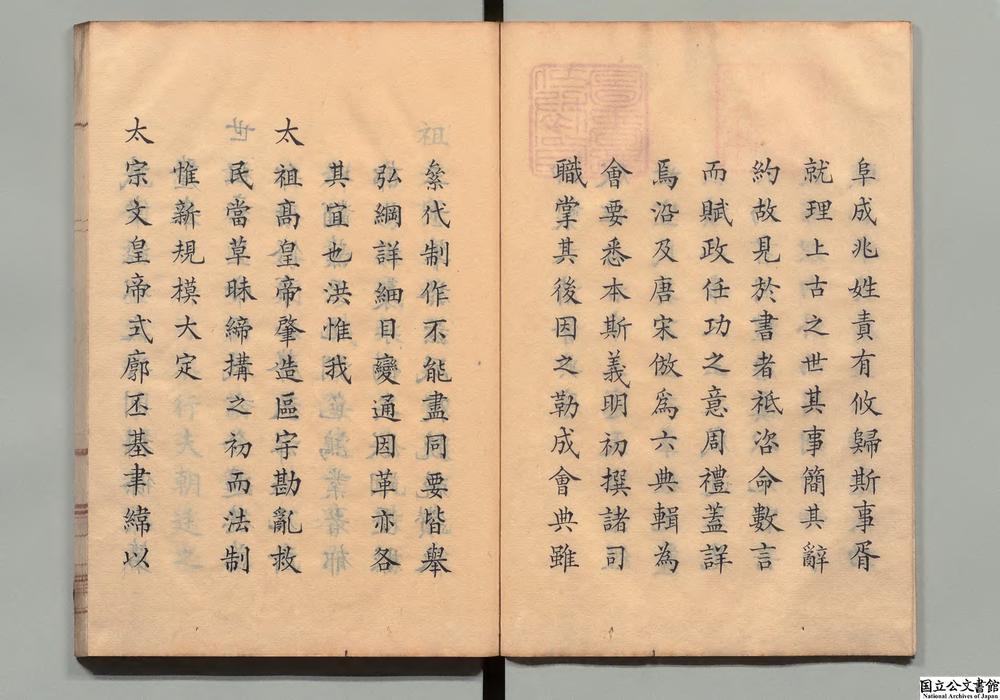 阜成兆姓責有攸歸斯事胥
就理上古之世其事簡其辭
約故見於書者祗咨命數言
而賦政任功之意周禮蓋詳
焉沿及唐宋倣爲六典輯為
會要悉本斯義明初撰諸司
職掌其後因之勒成會典雖
絫代制作不能盡同要皆舉
弘綱詳細目變通因革亦各
其宜也洪惟我
太祖高皇帝肇造區宇勘亂救
民當草昧締搆之初而法制
惟新規模大定
太宗文皇帝式廓丕基書緯以
国立公文書館
National Archives of Japan